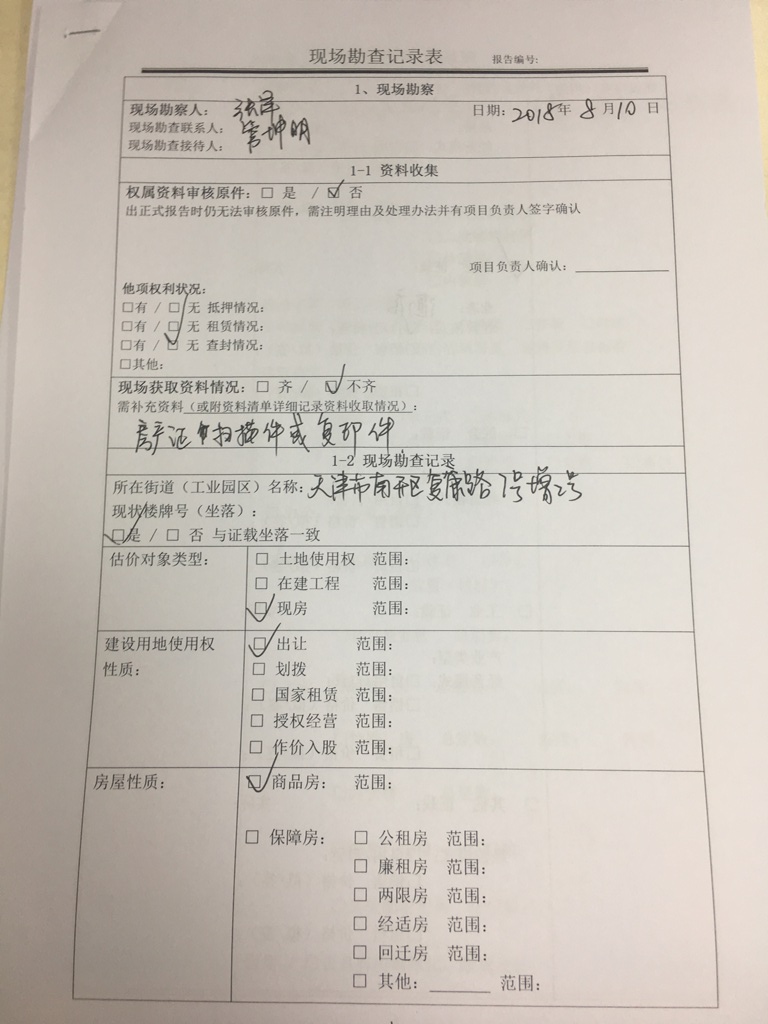 现场勘查记录表 报告编号:
1、现场勘察
现场勘察人: 日期: 2018年 8 月10 日
现场勘查联系人: 管坤明
现场勘查接待人:
1-1 资料收集
权属资料审核原件: □ 是 / ☑ 否
出正式报告时仍无法审核原件，需注明理由及处理办法并有项目负责人签字确认
项目负责人确认:
他项权利状况:
□有 / □ 无 抵押情况:
□有 / □ 无 租赁情况:
□有 / ☑ 无 查封情况:
□其他:
现场获取资料情况: □ 齐 / ☑ 不齐
需补充资料（或附资料清单详细记录资料收取情况）:
房产证扫描件或复印件
1-2 现场勘查记录
所在街道（工业园区）名称: 天津市南开区复康路 7号增2号
现状楼牌号（坐落）:
☑是 / □ 否 与证载坐落一致
估价对象类型: □ 土地使用权 范围:
□ 在建工程 范围:
☑ 现房 范围:
建设用地使用权 ☑ 出让 范围:
性质: □ 划拨 范围:
□ 国家租赁 范围:
□ 授权经营 范围:
□ 作价入股 范围:
房屋性质: ☑ 商品房: 范围:
□ 保障房: □ 公租房 范围:
□ 廉租房 范围:
□ 两限房 范围:
□ 经适房 范围:
□ 回迁房 范围:
□ 其他: 范围: